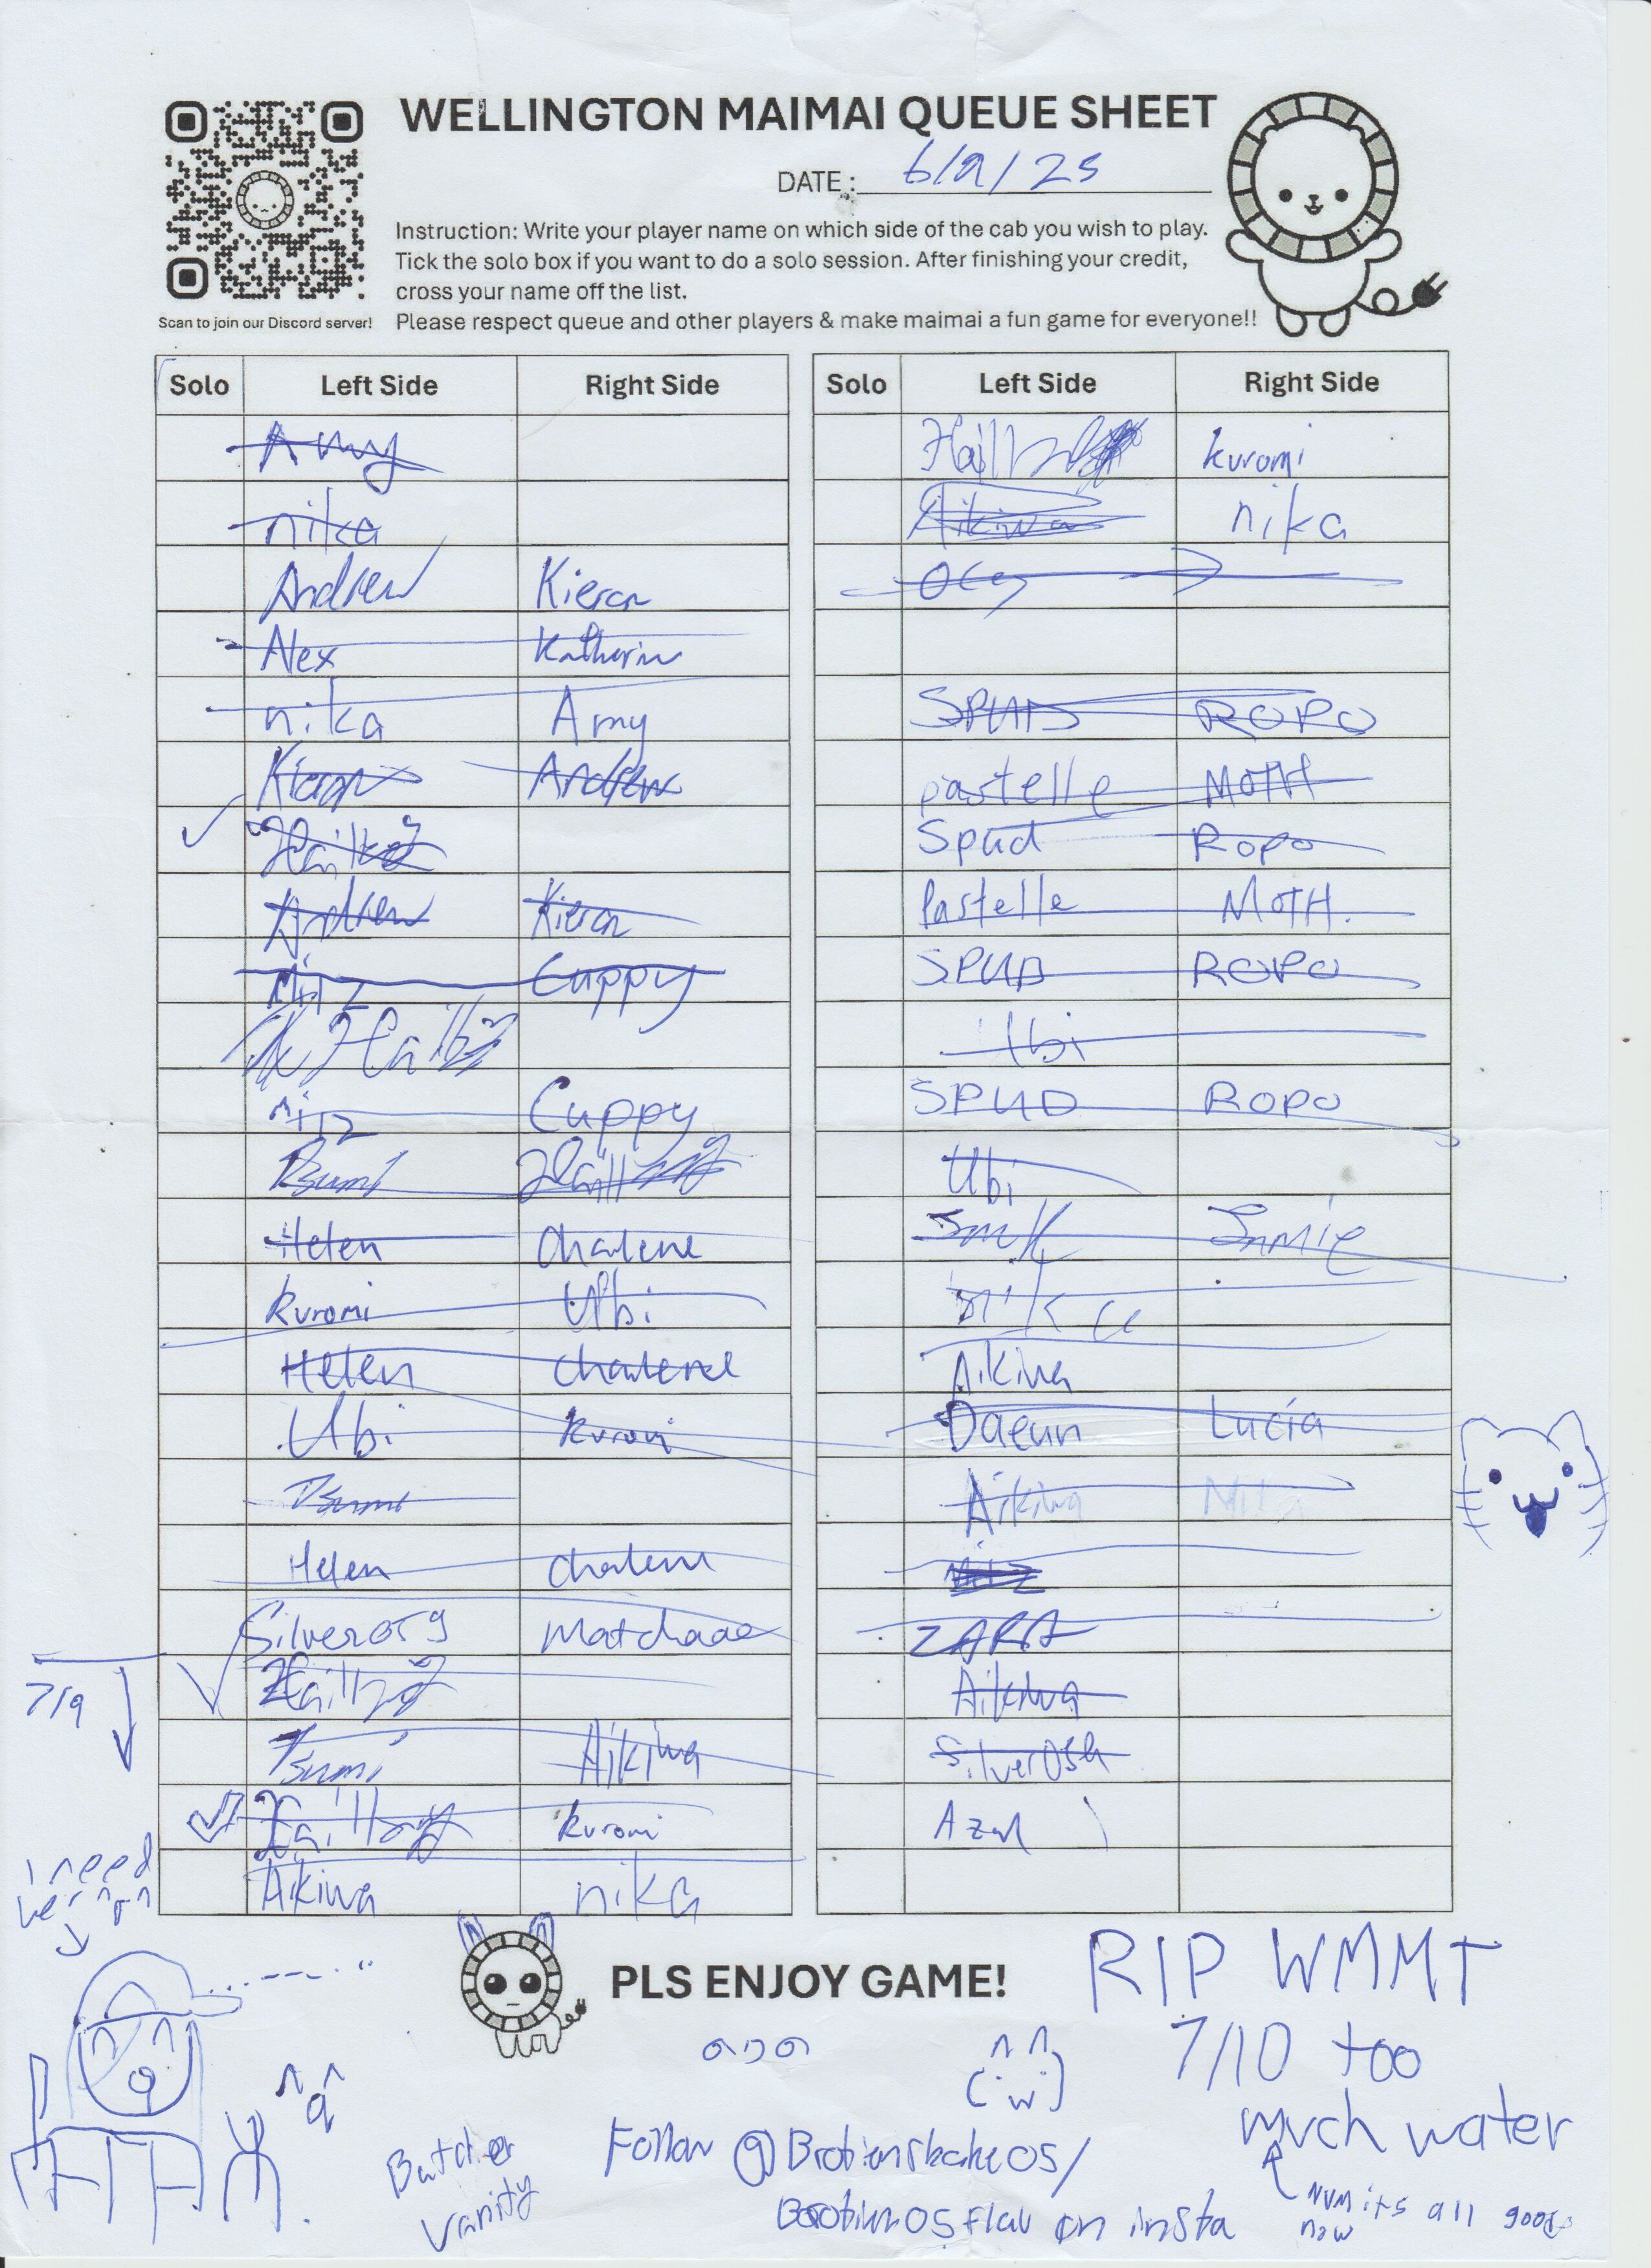 WELLINGTON MAIMAI QUEUE SHEET
DATE : 6/9/25
Instruction: Write your player name on which side of the cab you wish to play.
Tick the solo box if you want to do a solo session. After finishing your credit,
cross your name off the list.
Please respect queue and other players & make maimai a fun game for everyone!!
Scan to join our Discord server!
Solo Left Side Right Side
Amy
nika
Andrew Kieran
Alex Katherin
nika Amy
Kieran Andrew
Andrew Kieran
Mitz Cuppy
Mitz Cuppy
Tsumi
Helen Charlene
kuromi Ubi
Helen Charlene
Ubi kuromi
Tsumi
Helen Charlene
Matchaaa
7/9
Tsumi Aikiwa
kuromi
Aikiwa nika
Solo Left Side Right Side
kuromi
Aikiwa nika
SPUD ROPO
pastelle MOTH
Spud Ropo
Pastelle MOTH.
SPUD ROPO
Ubi
SPUD ROPO
Ubi
nika
Aikiwa
Daeun Lucia
Aikiwa
Mitz
ZARA
Aikiwa
Azul
I need
PLS ENJOY GAME!
RIP WMMT
7/10 too
much water
NVM its all good
now
(·w·)
Butcher
vanity
Follow
on insta